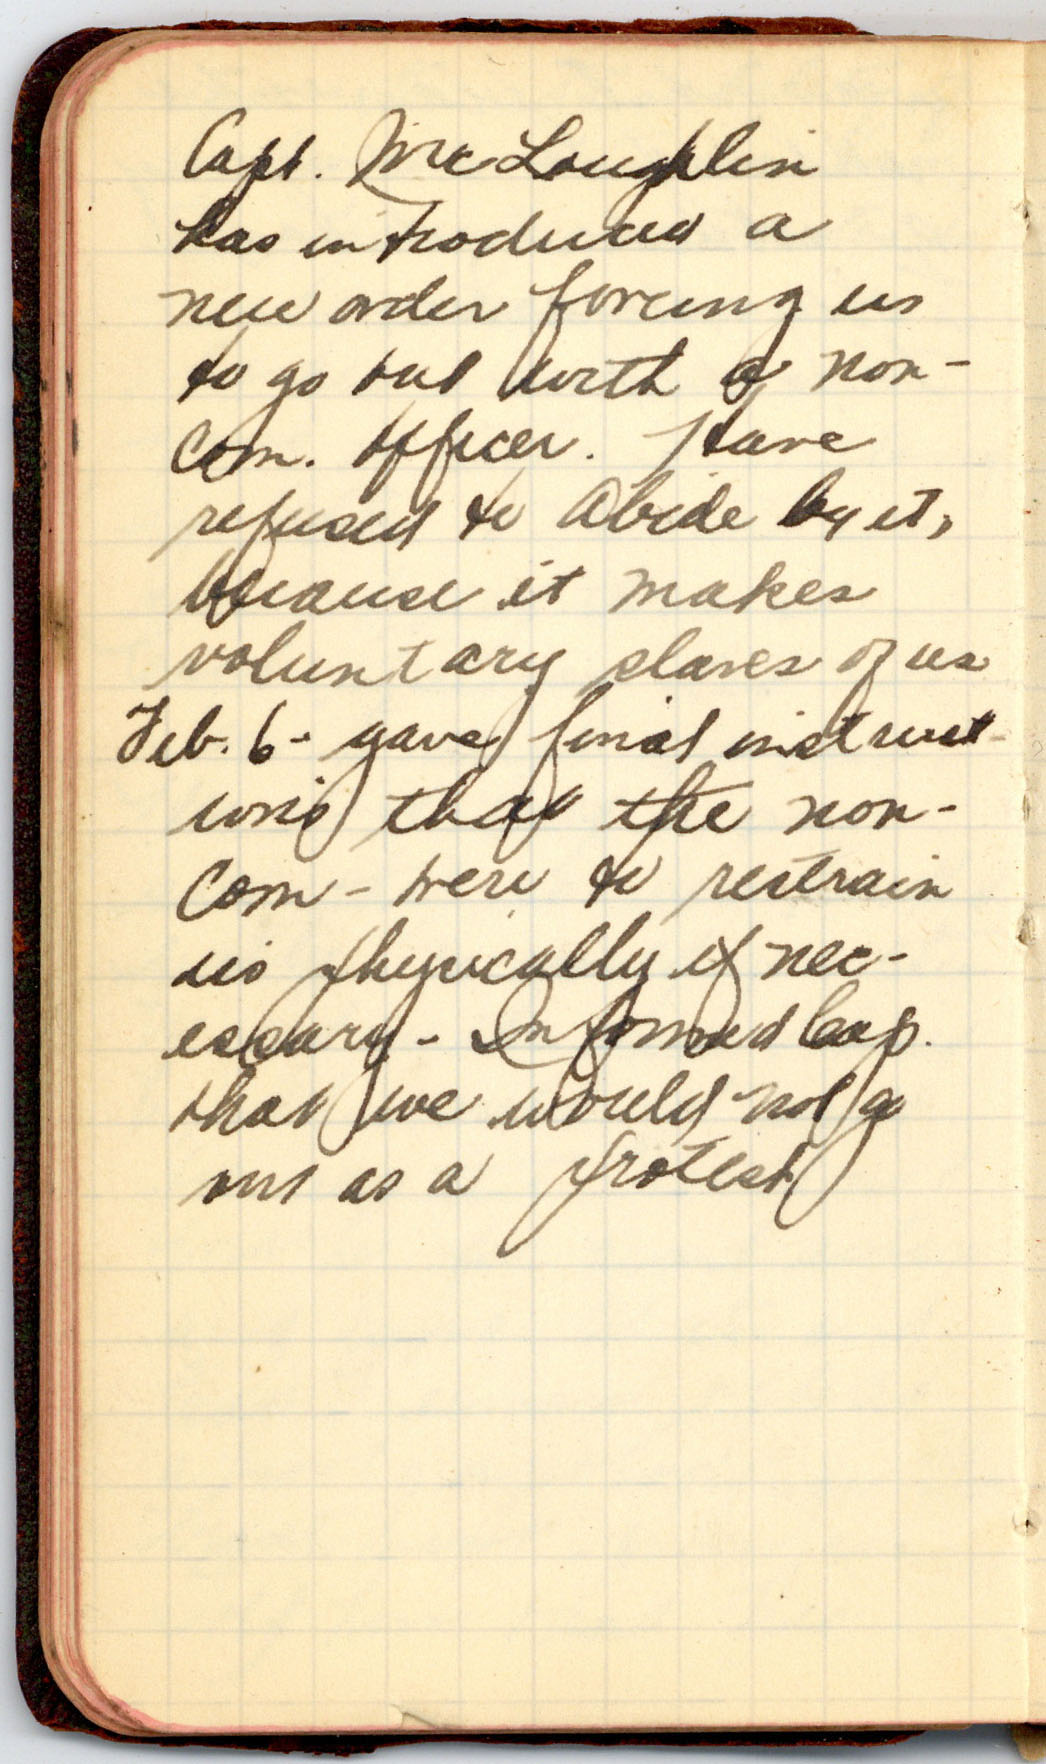 Capt. McLoughlin
has introduced a
new order forcing us
to go out with a non-
com. officer. Have
refused to abide by it,
because it makes
voluntary slaves of us
Feb. 6 - gave final instruct-
ions that the non-
com - were to restrain
us physically if nec-
essary - Informed Cap.
that we would not go
out as a protest